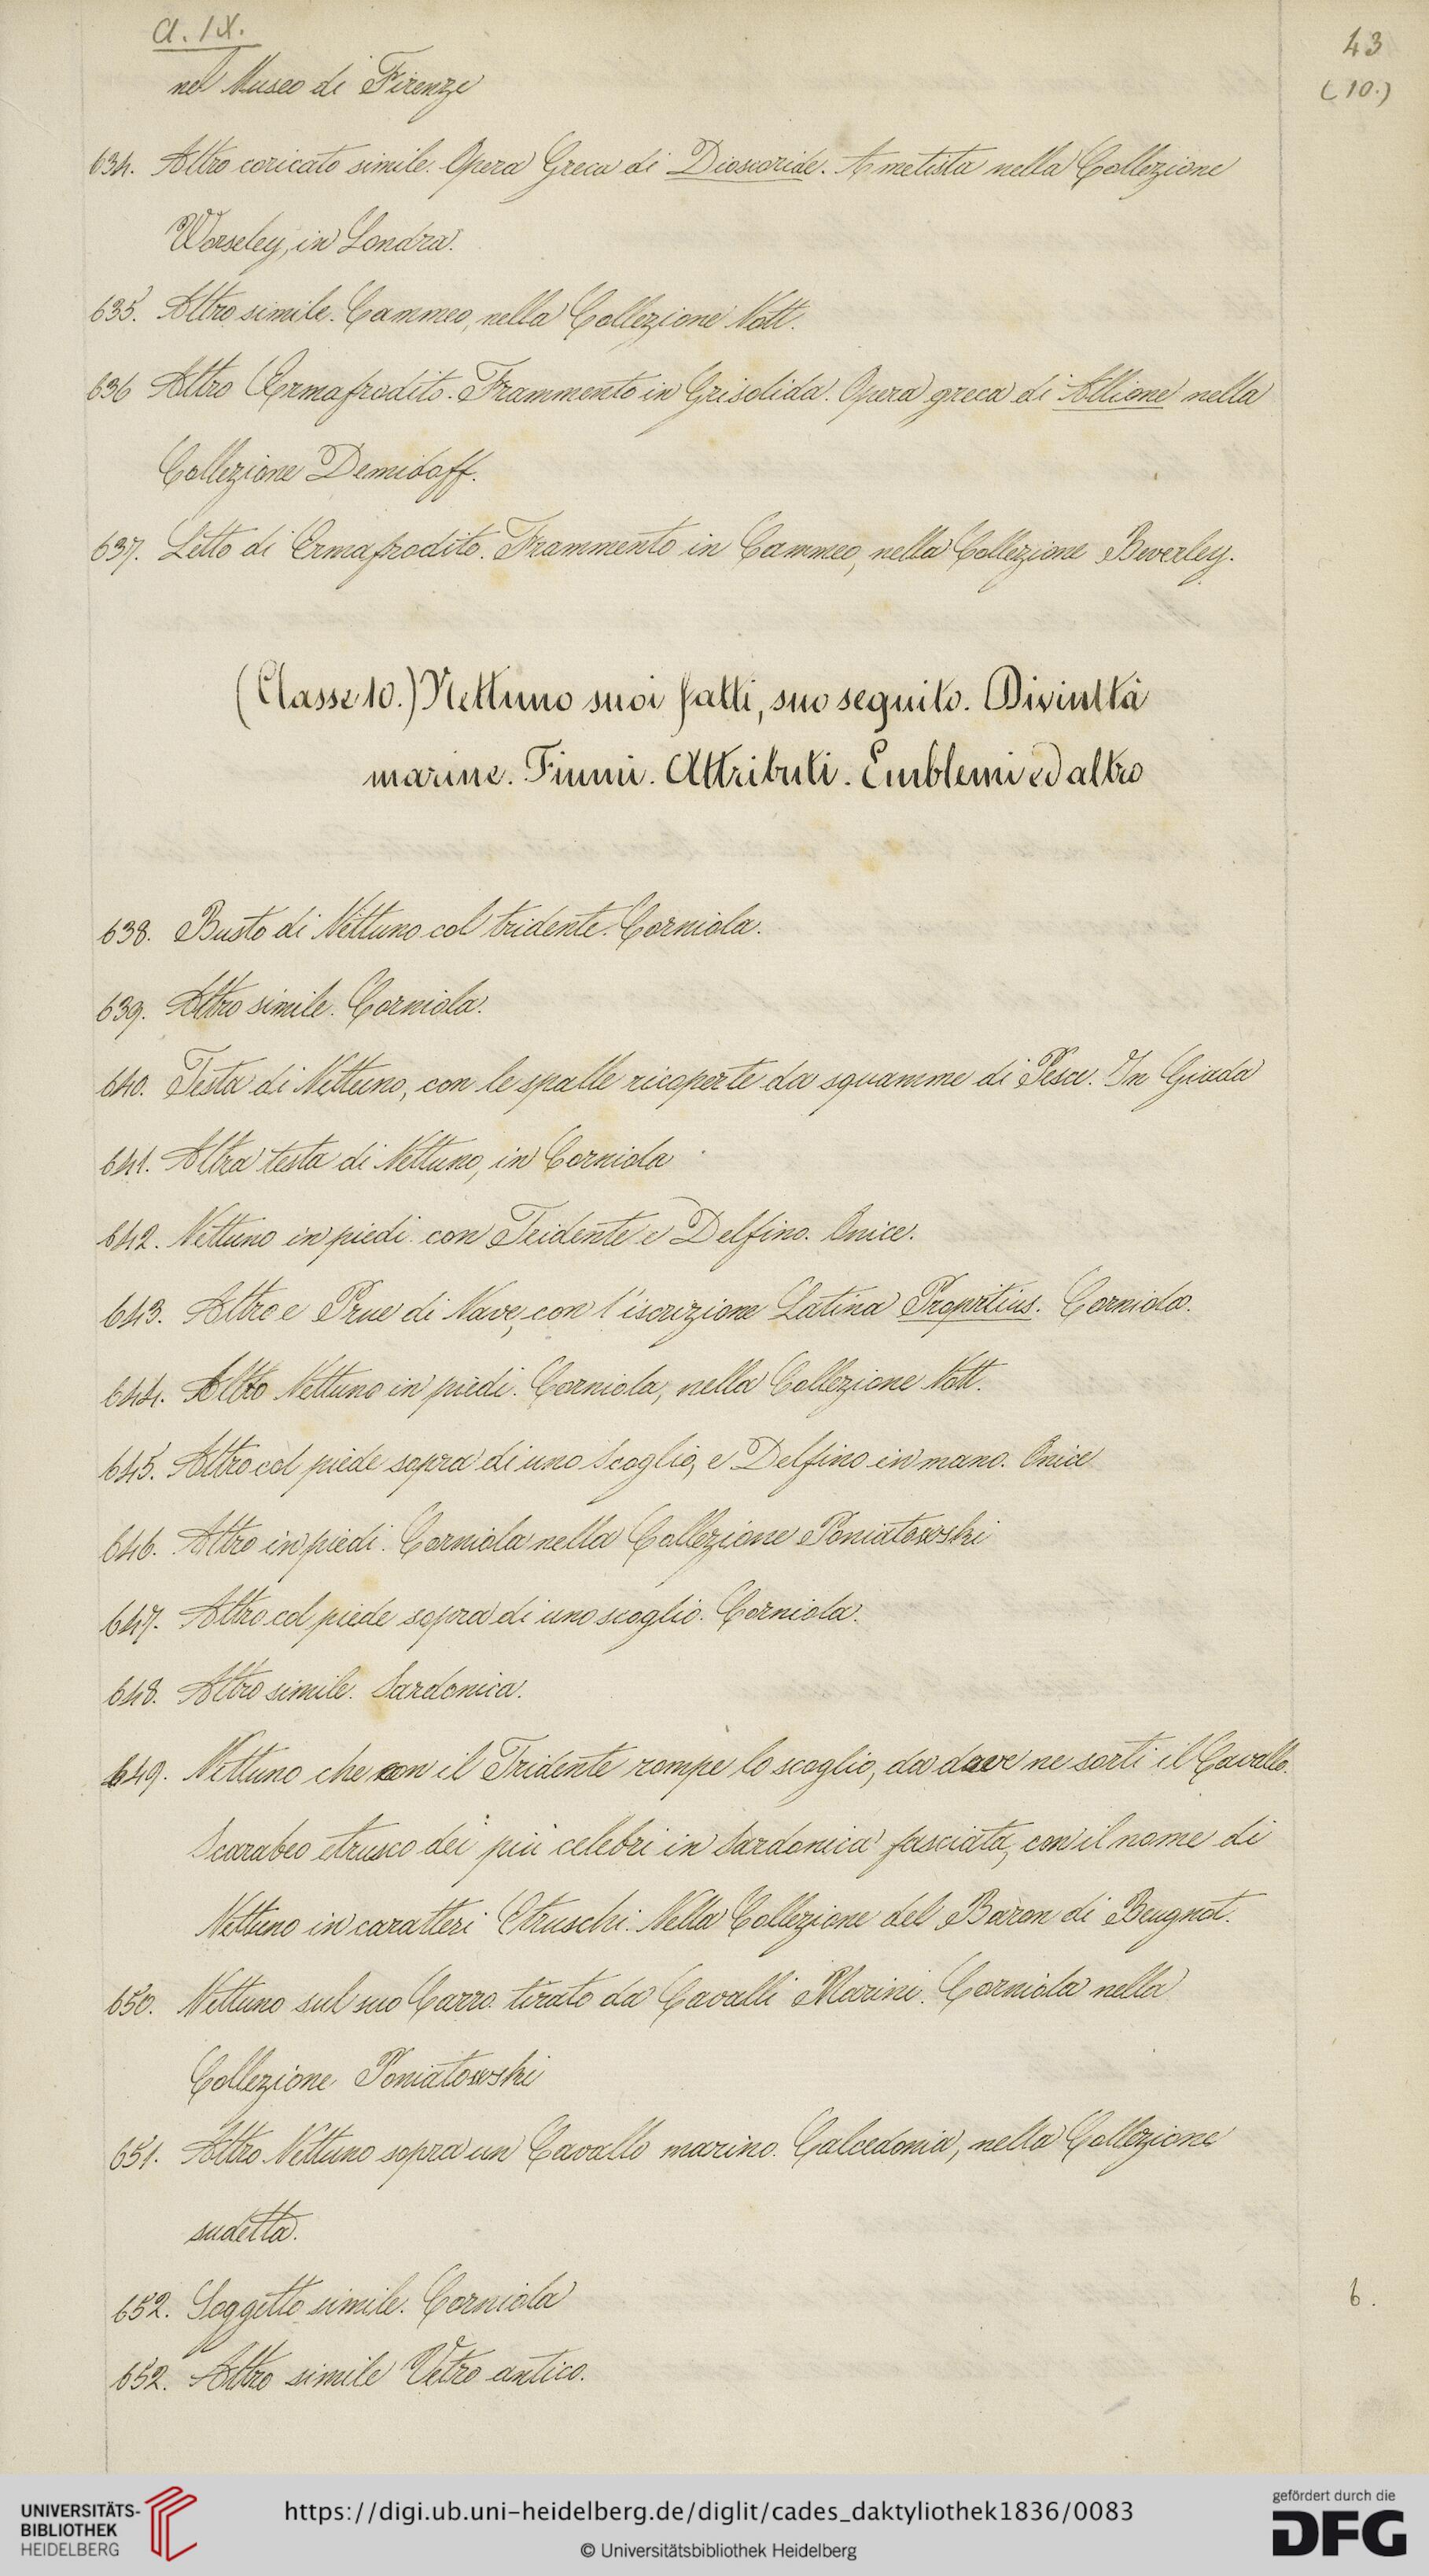 a. IX.
43
(10.)
nel Museo di Firenze
634. Altro coricato simile. Opera Greca di Dioscoride. Ametista nella Collezione
Worseley, in Londra.
635. Altro simile. Cammeo, nella Collezione Nott.
636 Altro Ermafrodito. Frammento in Grisolida. Opera greca di Allione nella
Collezione Demidoff.
637. Letto di Ermafrodito. Frammento in Cammeo, nella Collezione Beverley.
(Classe 10.) Nettuno suoi fatti, suo seguito. Divinità
marine. Fiumi. Attributi. Emblemi ed altro
638. Busto di Nettuno col tridente. Corniola.
639. Altro simile. Corniola.
640. Testa di Nettuno, con le spalle ricoperte da squamme di Pesce. In Giada
641. Altra testa di Nettuno, in Corniola
642. Nettuno in piedi con Tridente e Delfino. Onice.
643. Altro e Prue di Nave, con l'iscrizione Latina Propritius. Corniola.
644. Altro Nettuno in piedi. Corniola, nella Collezione Nott.
645. Altro col piede sopra di uno Scoglio, e Delfino in mano. Onice
646. Altro in piedi. Corniola nella Collezione Poniatowski
647. Altro col piede sopra di uno scoglio. Corniola.
648. Altro simile. Sardonica.
649. Nettuno che con il Tridente rompe lo scoglio, da dove ne sorti il Cavallo.
Scarabeo etrusco dei più celebri in Sardonica fasciata, con il nome di
Nettuno in caratteri Etruschi. Nella Collezione del Baron di Beugnot.
650. Nettuno sul suo Carro tirato da Cavalli Marini. Corniola nella
Collezione Poniatowski
651. Altro Nettuno sopra un Cavallo marino. Calcedonia, nella Collezione
sudetta.
652. Soggetto simile. Corniola
6.
652. Altro simile Vetro antico.
UNIVERSITÄTS-
BIBLIOTHEK
HEIDELBERG
https://digi.ub.uni-heidelberg.de/diglit/cades_daktyliothek1836/0083
© Universitätsbibliothek Heidelberg
gefördert durch die
DFG